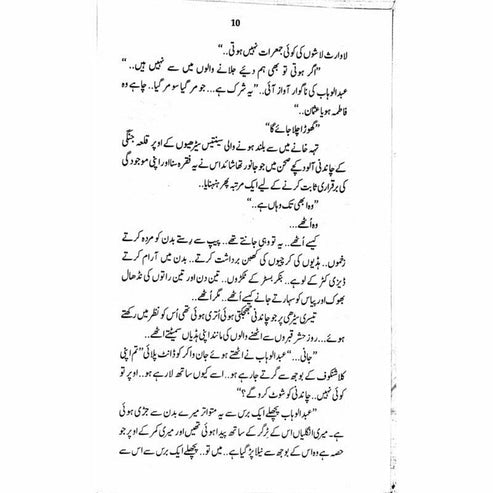 10
لاوارث لاشوں کی کوئی جمعرات نہیں ہوتی..“
”اگر ہوتی تو بھی ہم دیئے جلانے والوں میں سے نہیں ہیں.. “
عبدالوہاب کی ناگوار آواز آئی.. ”یہ شرک ہے... جو مر گیا سو مر گیا.. چاہے وہ
فاطمہ ہو یا عثمان.. “
”گھوڑا چلا جائے گا“
تہہ خانے میں سے بلند ہونے والی سینتیس سیڑھیوں کے اوپر قلعہ جنگی
کے چاندنی آلود کچے صحن میں جو جانور تھا شائد اس نے یہ فقرہ سنا اور اپنی موجودگی
کی برقراری ثابت کرنے کے لیے ایک مرتبہ پھر ہنہنایا..
”وہ ابھی تک وہاں ہے.. “
وہ اُٹھے...
کیسے اُٹھے.. یہ تو وہی جانتے تھے.. پیپ سے رِستے بدن کو مردہ کرتے
زخموں.. ہڈیوں کی کرچیوں کی چبھن برداشت کرتے.. بدن میں آرام کرتے
ڈیزی کٹر کے لوہے.. بنکر بسٹر کے ٹکڑوں.. تین دن اور تین راتوں کی نڈھال
بھوک اور پیاس کو سہارتے جانے کیسے اُٹھے.. مگر اُٹھے..
تیسری سیڑھی پر جو چاندنی جھجکتی ہوئی اُتری ہوئی تھی اُس کو نظر میں رکھتے
ہوئے... روز حشر قبروں سے اٹھنے والوں کی مانند اپنی ہڈیاں سمیٹتے اٹھے..
”جانی...“ عبدالوہاب نے اٹھتے ہوئے جان واکر کو ڈانٹ پلائی ”تم اپنی
کلاشنکوف کے بوجھ سے گرتے جا رہے ہو.. اسے کیوں ساتھ لا رہے ہو.. اوپر تو
کوئی نہیں.. چاندنی کو شوٹ کرو گے؟“
”عبدالوہاب پچھلے ایک برس سے یہ متواتر میرے بدن سے جڑی ہوئی
ہے۔ میری انگلیاں اس کے ٹرگر کے ساتھ پیدا ہوئی تھیں اور میری کمر کے اوپر جو
حصہ ہے وہ اس کے بوجھ سے نیلا پڑ گیا ہے.. میں تو.. پچھلے ایک برس سے اس سے